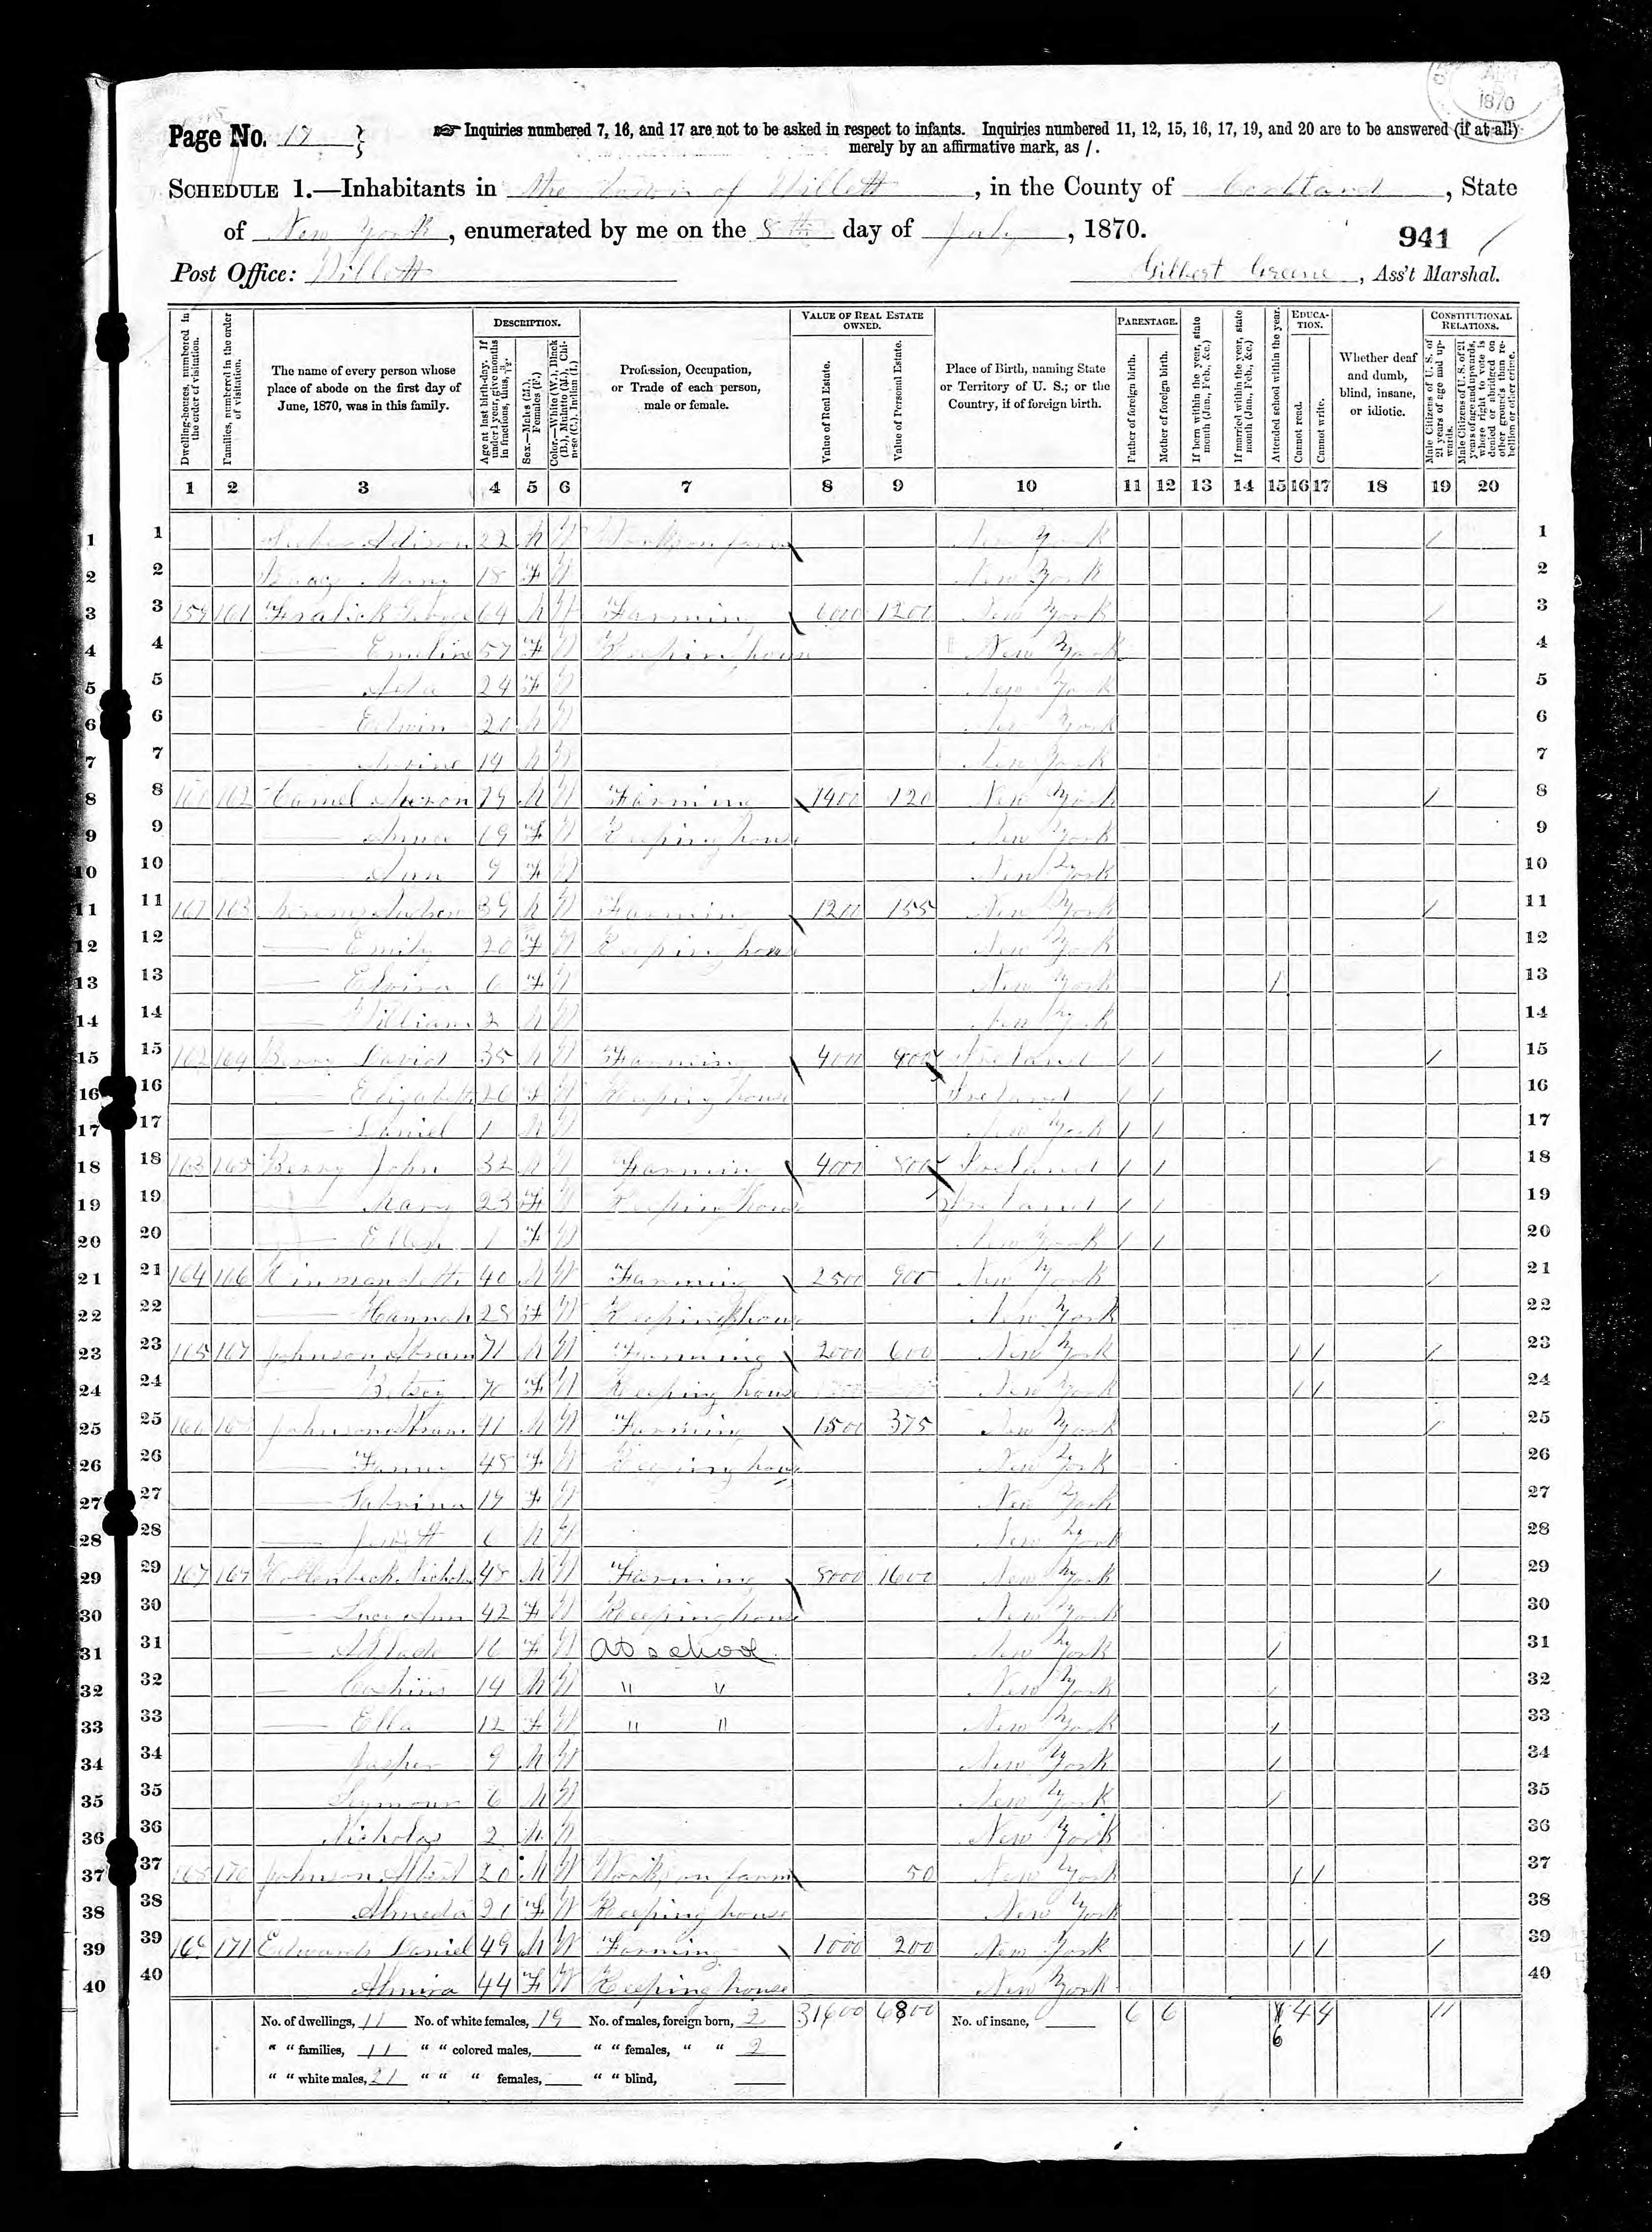 1870
Page No. 17 } ☞ Inquiries numbered 7, 16, and 17 are not to be asked in respect to infants. Inquiries numbered 11, 12, 15, 16, 17, 19, and 20 are to be answered (if at all)
merely by an affirmative mark, as /.
SCHEDULE 1.—Inhabitants in the town of Willett, in the County of Cortland, State
of New York, enumerated by me on the 8th day of July, 1870.
941
Post Office: Willett Gilbert Greene, Ass't Marshal.
Dwelling-houses, numbered in the order of visitation.
Families, numbered in the order of visitation.
The name of every person whose place of abode on the first day of June, 1870, was in this family.
DESCRIPTION.
Age at last birth-day. If under 1 year, give months in fractions, thus, 3/12.
Sex.—Males (M.), Females (F.)
Color.—White (W.), Black (B.), Mulatto (M.), Chinese (C.), Indian (I.)
Profession, Occupation, or Trade of each person, male or female.
VALUE OF REAL ESTATE OWNED.
Value of Real Estate.
Value of Personal Estate.
Place of Birth, naming State or Territory of U. S.; or the Country, if of foreign birth.
PARENTAGE.
Father of foreign birth.
Mother of foreign birth.
If born within the year, state month (Jan., Feb., &c.)
If married within the year, state month (Jan., Feb., &c.)
Attended school within the year.
EDUCATION.
Cannot read.
Cannot write.
Whether deaf and dumb, blind, insane, or idiotic.
CONSTITUTIONAL RELATIONS.
Male Citizens of U. S. of 21 years of age and upwards.
Male Citizens of U. S. of 21 years of age and upwards, whose right to vote is denied or abridged on other grounds than rebellion or other crime.
1 2 3 4 5 6 7 8 9 10 11 12 13 14 15 16 17 18 19 20
1 Adison 22 M W Works on farm New York /
2 Mary 18 F W New York
3 159 161 Fralick 64 M W Farming 6000 1200 New York /
4 Emeline 57 F W Keeping house New York
5 24 F W New York
6 Edwin 20 M W New York
7 14 M W New York
8 160 162 M W Farming 1400 120 New York /
9 69 F W Keeping house New York
10 Ann 9 F W New York
11 161 163 39 M W Farming 1200 155 New York /
12 Emily 20 F W Keeping house New York
13 6 F W New York /
14 William 2 M W New York
15 162 164 Berry David 35 M W Farming 4000 900 Ireland / / /
16 Elizabeth 26 F W Keeping house Ireland / /
17 Daniel 1 M W New York / /
18 163 165 Berry John 32 M W Farming 4000 800 Ireland / / /
19 Mary 23 F W Keeping house Ireland / /
20 Ellen 1 F W New York / /
21 164 166 Kinman 40 M W Farming 2500 900 New York /
22 Hannah 28 F W Keeping house New York
23 165 167 Johnson Abram 71 M W Farming 2000 600 New York / / /
24 Betsey 70 F W Keeping house New York / /
25 166 168 Johnson Abram 41 M W Farming 1500 375 New York /
26 Fanny 48 F W Keeping house New York
27 Sabrina 19 F W New York
28 6 M W New York
29 167 169 Hollenbeck Nichols 48 M W Farming 8000 1600 New York /
30 Lucy Ann 42 F W Keeping house New York
31 16 F W At school New York /
32 14 M W " " New York /
33 Ella 12 F W " " New York /
34 Jasper 9 M W New York /
35 Seymour 6 M W New York /
36 Nicholas 2 M W New York
37 168 170 Johnson Albert 20 M W Works on farm 50 New York / /
38 Almeda 21 F W Keeping house New York
39 169 171 Edwards Daniel 49 M W Farming 1000 200 New York / / /
40 Almira 44 F W Keeping house New York
No. of dwellings, 11 No. of white females, 19 No. of males, foreign born, 2 31600 6800 No. of insane, 6 6 6 4 4 11
" " families, 11 " " colored males, " " females, " " 2
" " white males, 21 " " " females, " " blind,